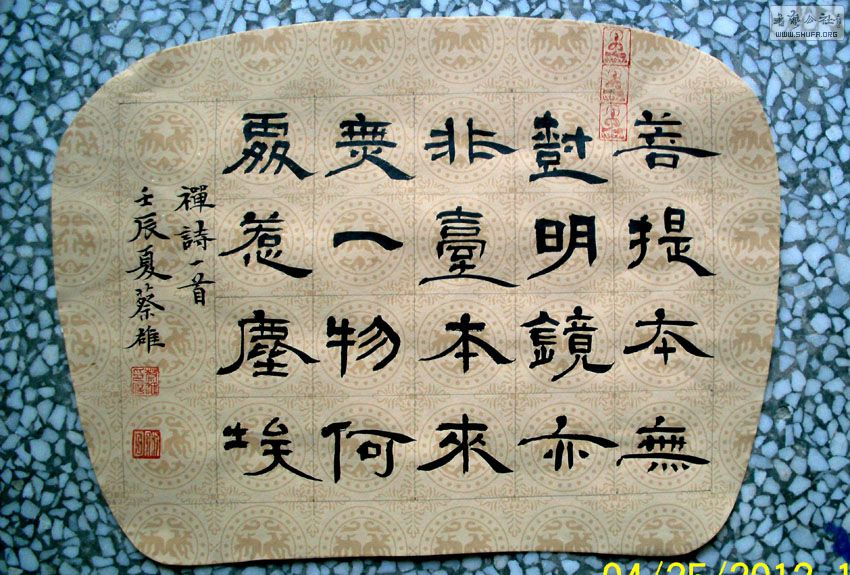 菩提本無
樹明鏡亦
非臺本來
無一物何
處惹塵埃
禪詩一首
壬辰夏蔡雄
WWW.SHUFA.ORG